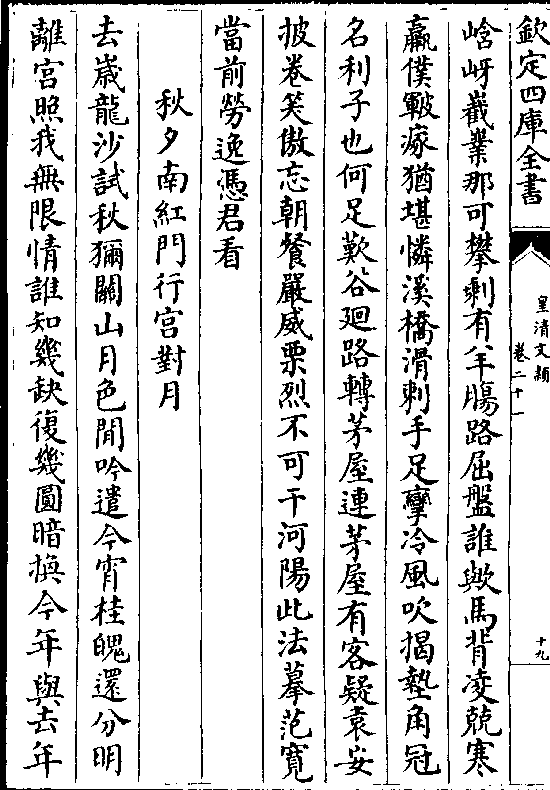 欽定四庫全書
皇清文穎
卷二十一
十九
峆岈嶻業那可攀剩有羊腸路屈盤誰歟馬背凌兢寒
羸僕皸瘃猶堪憐溪橋滑刺手足攣冷風吹揭墊角冠
名利子也何足歎谷迴路轉茅屋連茅屋有客疑袁安
披卷笑傲忘朝餐嚴威栗烈不可干河陽此法摹范寛
當前勞逸憑君看
秋夕南紅門行宫對月
去嵗龍沙試秋獮關山月色閒吟遣今宵桂魄還分明
離宫照我無限情誰知幾缺復幾圓暗換今年與去年